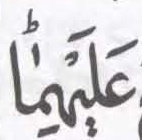 عَلَيْهِمَاؕ